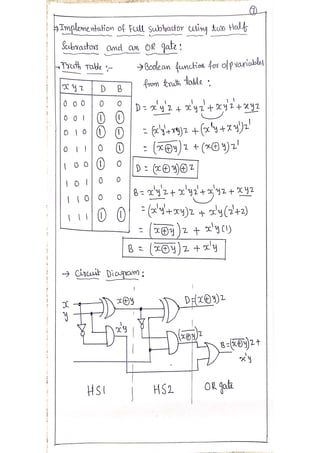 9
→ Implementation of Full Subtractor using two Half
Subtractors and an OR gate:
→ Truth Table :-
x y z D B
0 0 0 0 0
0 0 1 1 1
0 1 0 1 1
0 1 1 0 1
1 0 0 1 0
1 0 1 0 0
1 1 0 0 0
1 1 1 1 1
→ Boolean function for o/p variables
from truth table :
D = x'y'z + x'yz' + xy'z' + xyz
= (x'y'+xy)z + (x'y+xy')z'
= (x⊕y)'z + (x⊕y)z'
D = (x⊕y)⊕z
B = x'y'z + x'yz' + x'yz + xyz
= (x'y'+xy)z + x'y(z'+z)
= (x⊕y)'z + x'y(1)
B = (x⊕y)'z + x'y
→ Circuit Diagram :
x
y
x⊕y
x'y
D=(x⊕y)z
(x⊕y)'z
B=(x⊕y)'z+
x'y
HS1 HS2 OR gate